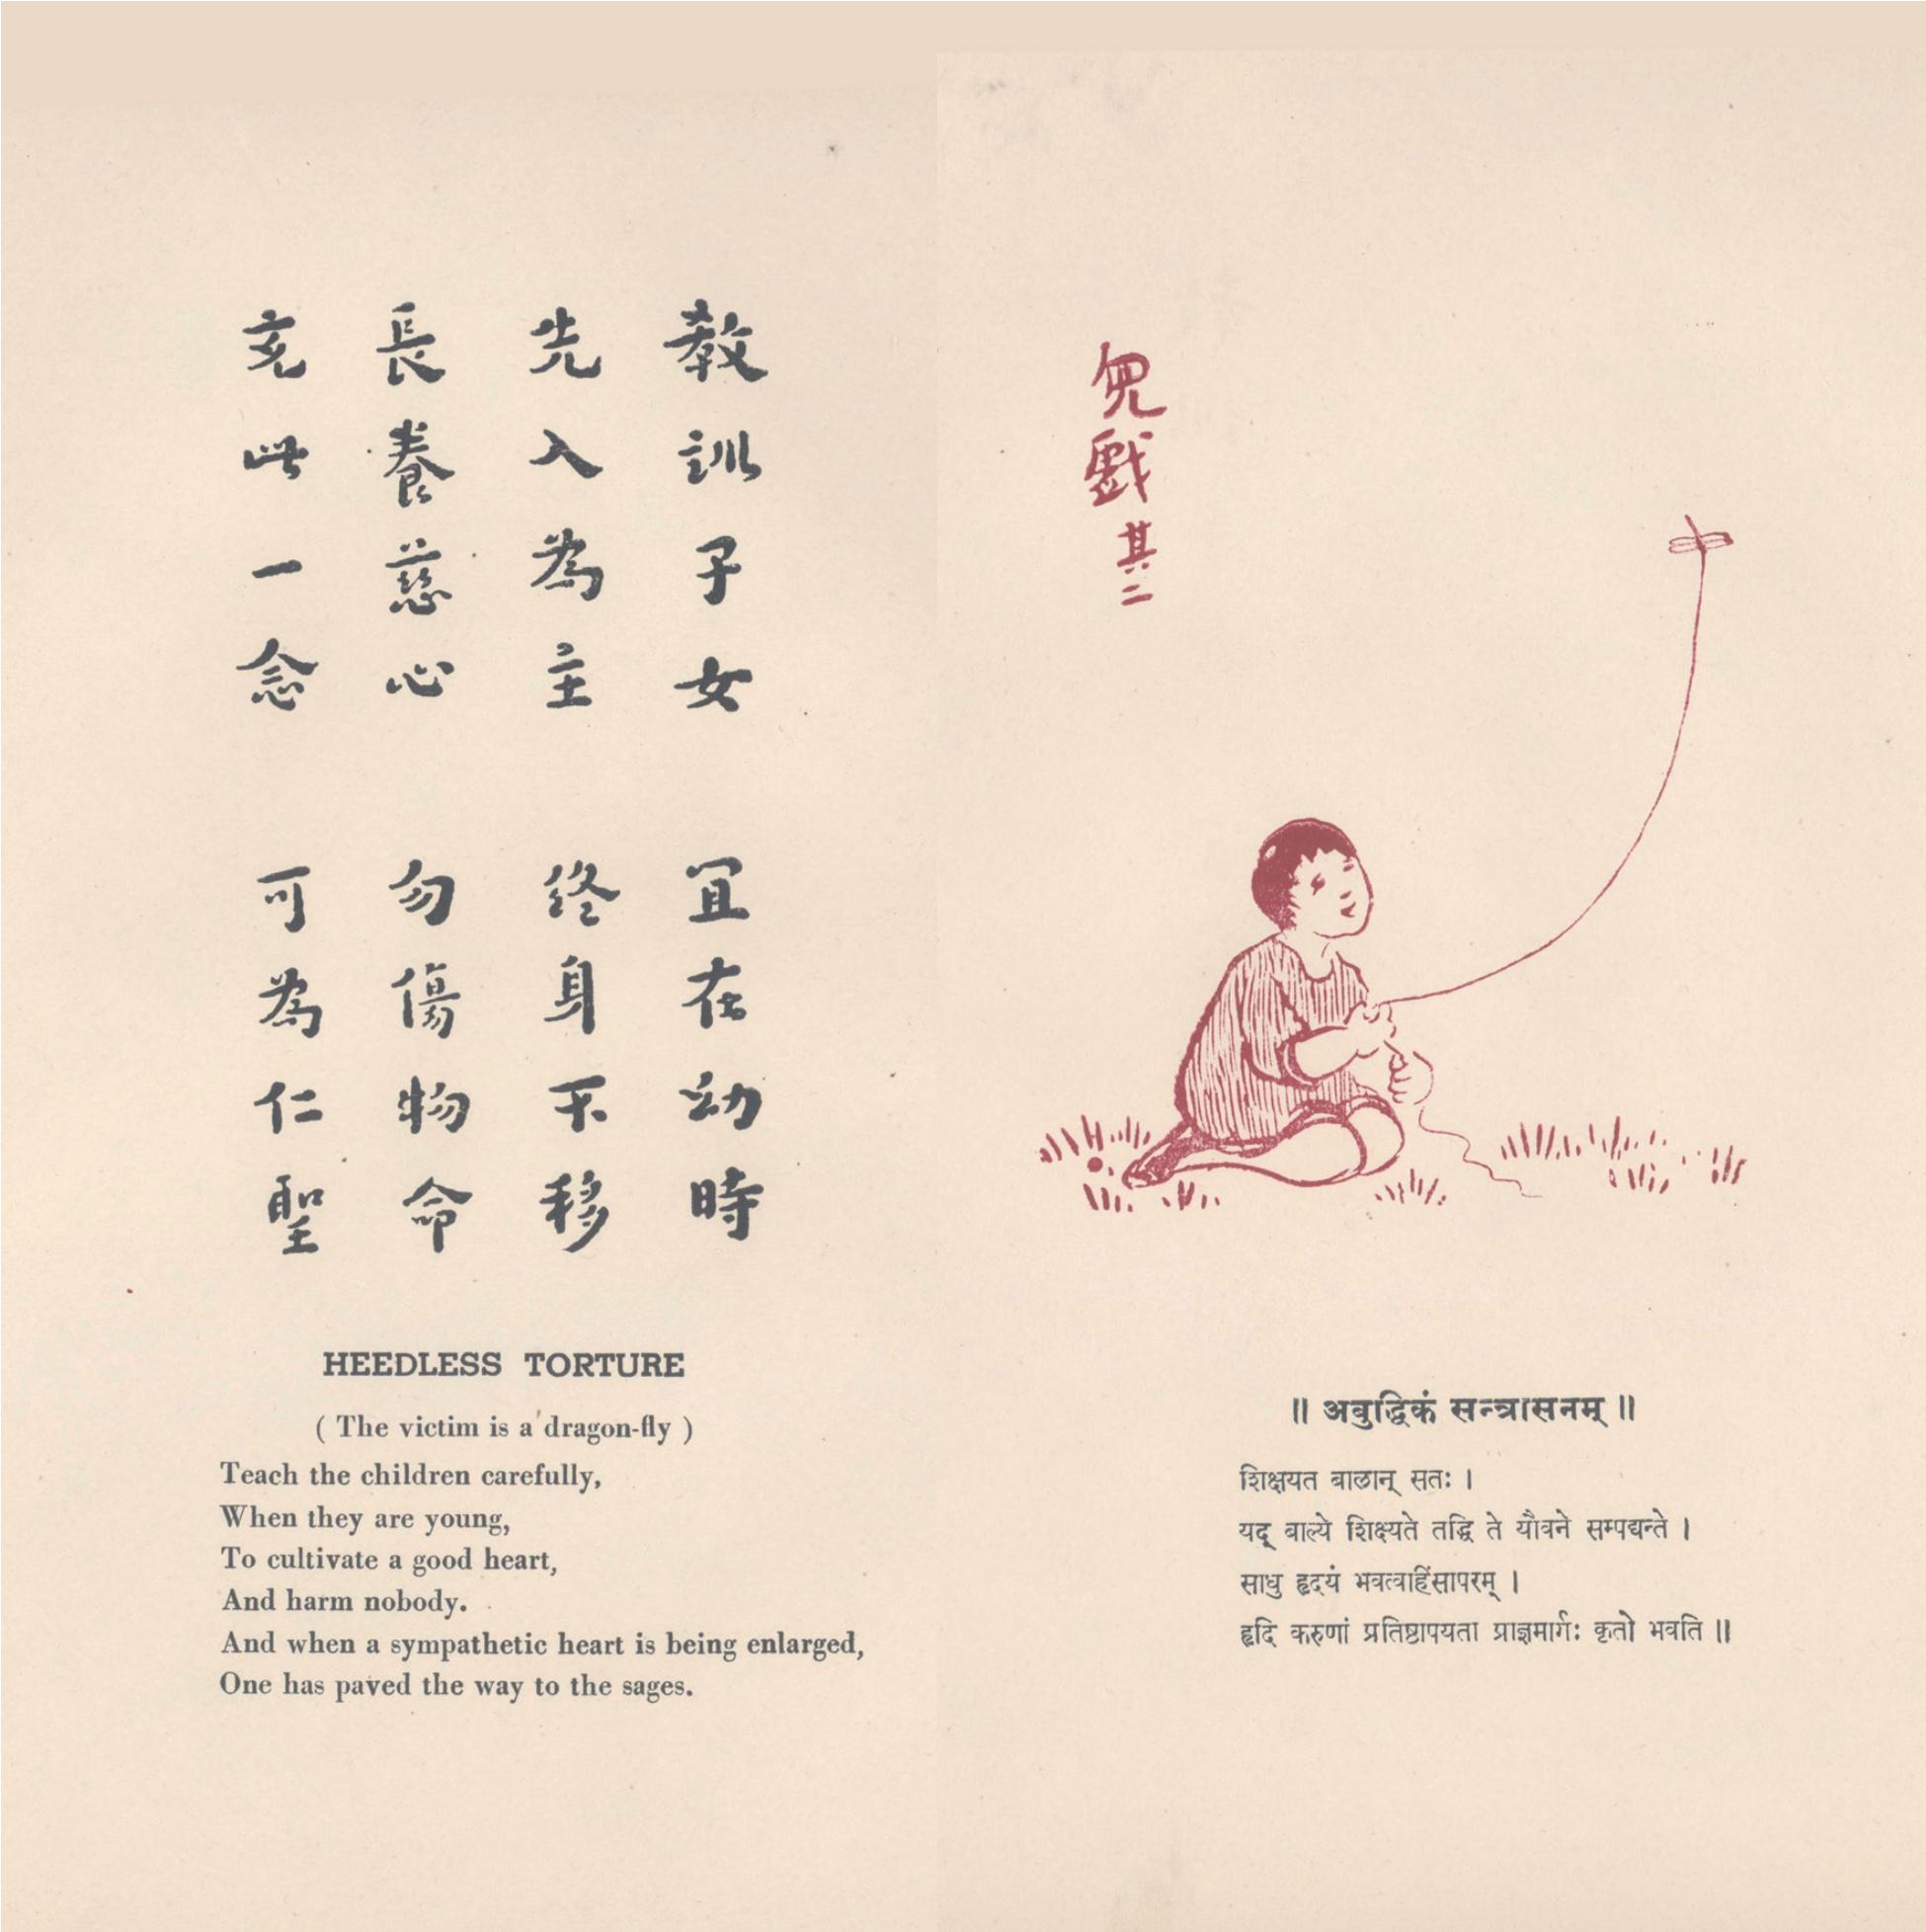 教訓子女 宜在幼時
先入為主 終身不移
長養慈心 勿傷物命
充此一念 可為仁聖
HEEDLESS TORTURE
( The victim is a dragon-fly )
Teach the children carefully,
When they are young,
To cultivate a good heart,
And harm nobody.
And when a sympathetic heart is being enlarged,
One has paved the way to the sages.
兒戲 其二
॥ अबुद्धिकं सन्त्रासनम् ॥
शिक्षयत बालान् सतः ।
यद् बाल्ये शिक्ष्यते तद्धि ते यौवने सम्पद्यन्ते ।
साधु हृदयं भवत्वाहिंसापरम् ।
हृदि करुणां प्रतिष्ठापयता प्राज्ञमार्गः कृतो भवति ॥